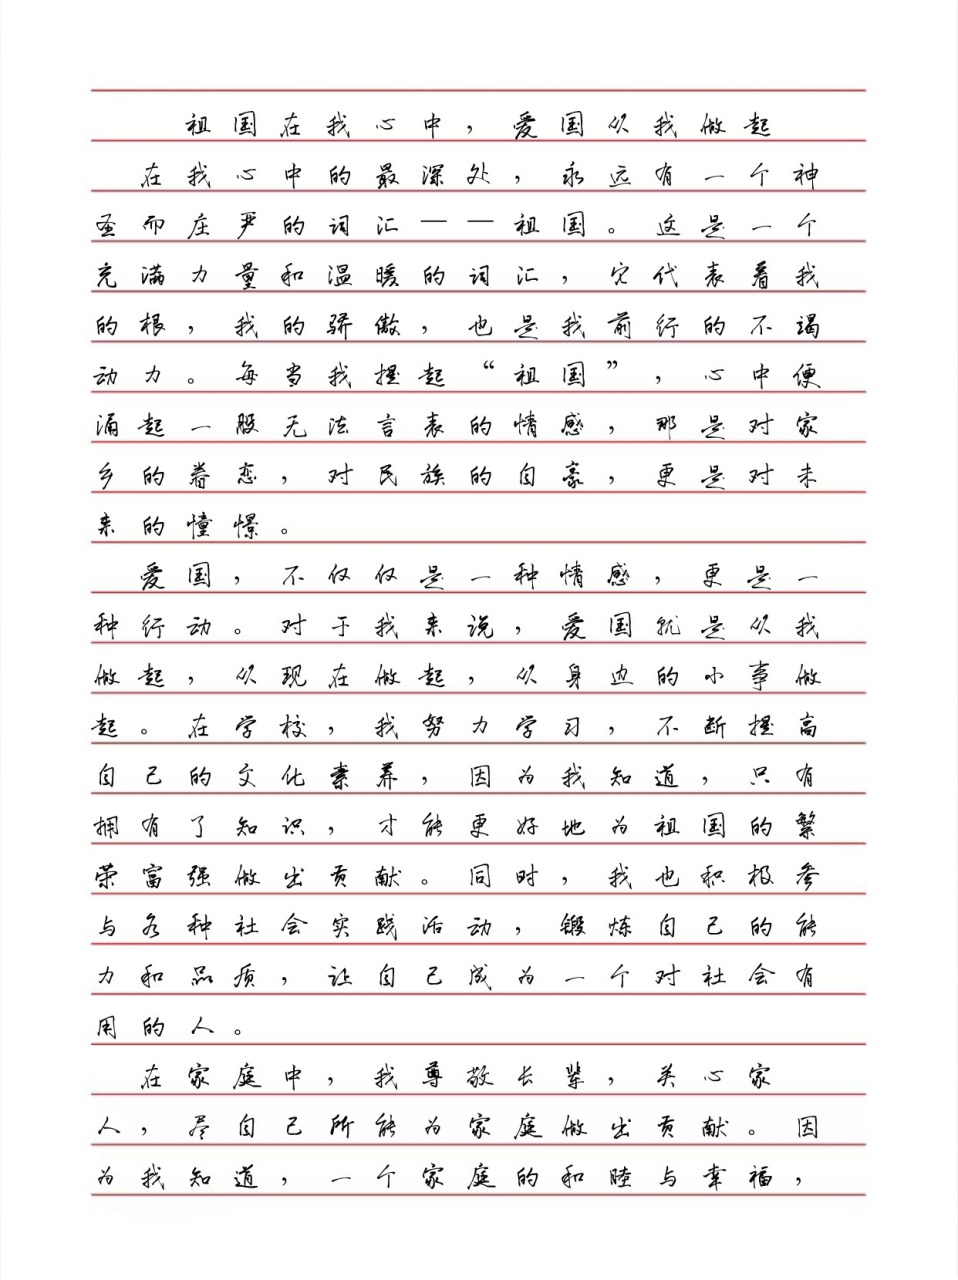 祖国在我心中，爱国从我做起
在我心中的最深处，永远有一个神
圣而庄严的词汇——祖国。这是一个
充满力量和温暖的词汇，它代表着我
的根，我的骄傲，也是我前行的不竭
动力。每当我提起“祖国”，心中便
涌起一股无法言表的情感，那是对家
乡的眷恋，对民族的自豪，更是对未
来的憧憬。
爱国，不仅仅是一种情感，更是一
种行动。对于我来说，爱国就是从我
做起，从现在做起，从身边的小事做
起。在学校，我努力学习，不断提高
自己的文化素养，因为我知道，只有
拥有了知识，才能更好地为祖国的繁
荣富强做出贡献。同时，我也积极参
与各种社会实践活动，锻炼自己的能
力和品质，让自己成为一个对社会有
用的人。
在家庭中，我尊敬长辈，关心家
人，尽自己所能为家庭做出贡献。因
为我知道，一个家庭的和睦与幸福，